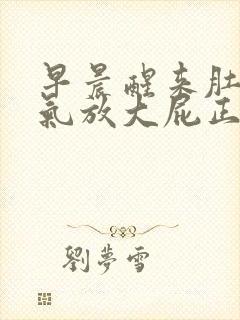 早晨醒来肚
氣放大屁正
劉夢雪